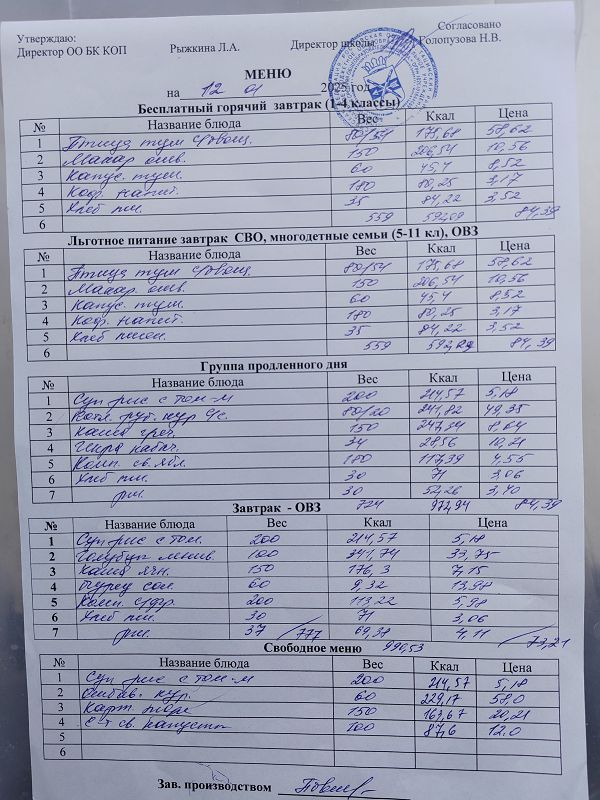 Утверждаю:
Согласовано
Директор ОО БК КОП Рыжкина Л.А. Директор школы Голопузова Н.В.
МЕНЮ
на 12 01 2025 год
Бесплатный горячий завтрак (1-4 классы)
№ Название блюда Вес Ккал Цена
1 Птица туш с/овощ. 80/54 175,68 58,62
2 Макар отв. 150 206,54 10,56
3 Капус. туш. 60 45,4 8,52
4 Коф. напит. 180 80,25 3,17
5 Хлеб пш. 35 84,22 3,52
6 559 592,09 84,39
Льготное питание завтрак СВО, многодетные семьи (5-11 кл), ОВЗ
№ Название блюда Вес Ккал Цена
1 Птица туш с/овощ. 80/54 175,68 58,62
2 Макар. отв. 150 206,54 10,56
3 Капус. туш. 60 45,4 8,52
4 Коф. напит. 180 80,25 3,17
5 Хлеб пшен. 35 84,22 3,52
6 559 592,09 84,39
Группа продленного дня
№ Название блюда Вес Ккал Цена
1 Суп рис с том-м 200 214,57 5,18
2 Котл. руб. кур 80/20 241,82 49,35
3 Каша греч. 150 247,34 8,64
4 Икра кабач. 34 28,56 10,21
5 Комп. св. ябл. 180 117,39 4,55
6 Хлеб пш. 30 71 3,06
7 рж. 30 52,26 3,40
724 972,94 84,39
Завтрак - ОВЗ
№ Название блюда Вес Ккал Цена
1 Суп рис с том. 200 214,57 5,18
2 Голубцы ленив. 100 341,74 33,75
3 Каша ячн. 150 176,3 7,15
4 Огурец сол. 60 9,32 13,98
5 Комп. с/фр. 200 113,22 5,98
6 Хлеб пш. 30 71 3,06
7 рж. 37 /777 69,38 4,11 /73,21
Свободное меню 996,53
№ Название блюда Вес Ккал Цена
1 Суп рис с том-м 200 214,57 5,18
2 Отбив. кур. 60 229,17 58,0
3 Карт. пюре 150 163,67 20,21
4 С-т св. капусты 100 87,6 12,0
5
6
Зав. производством